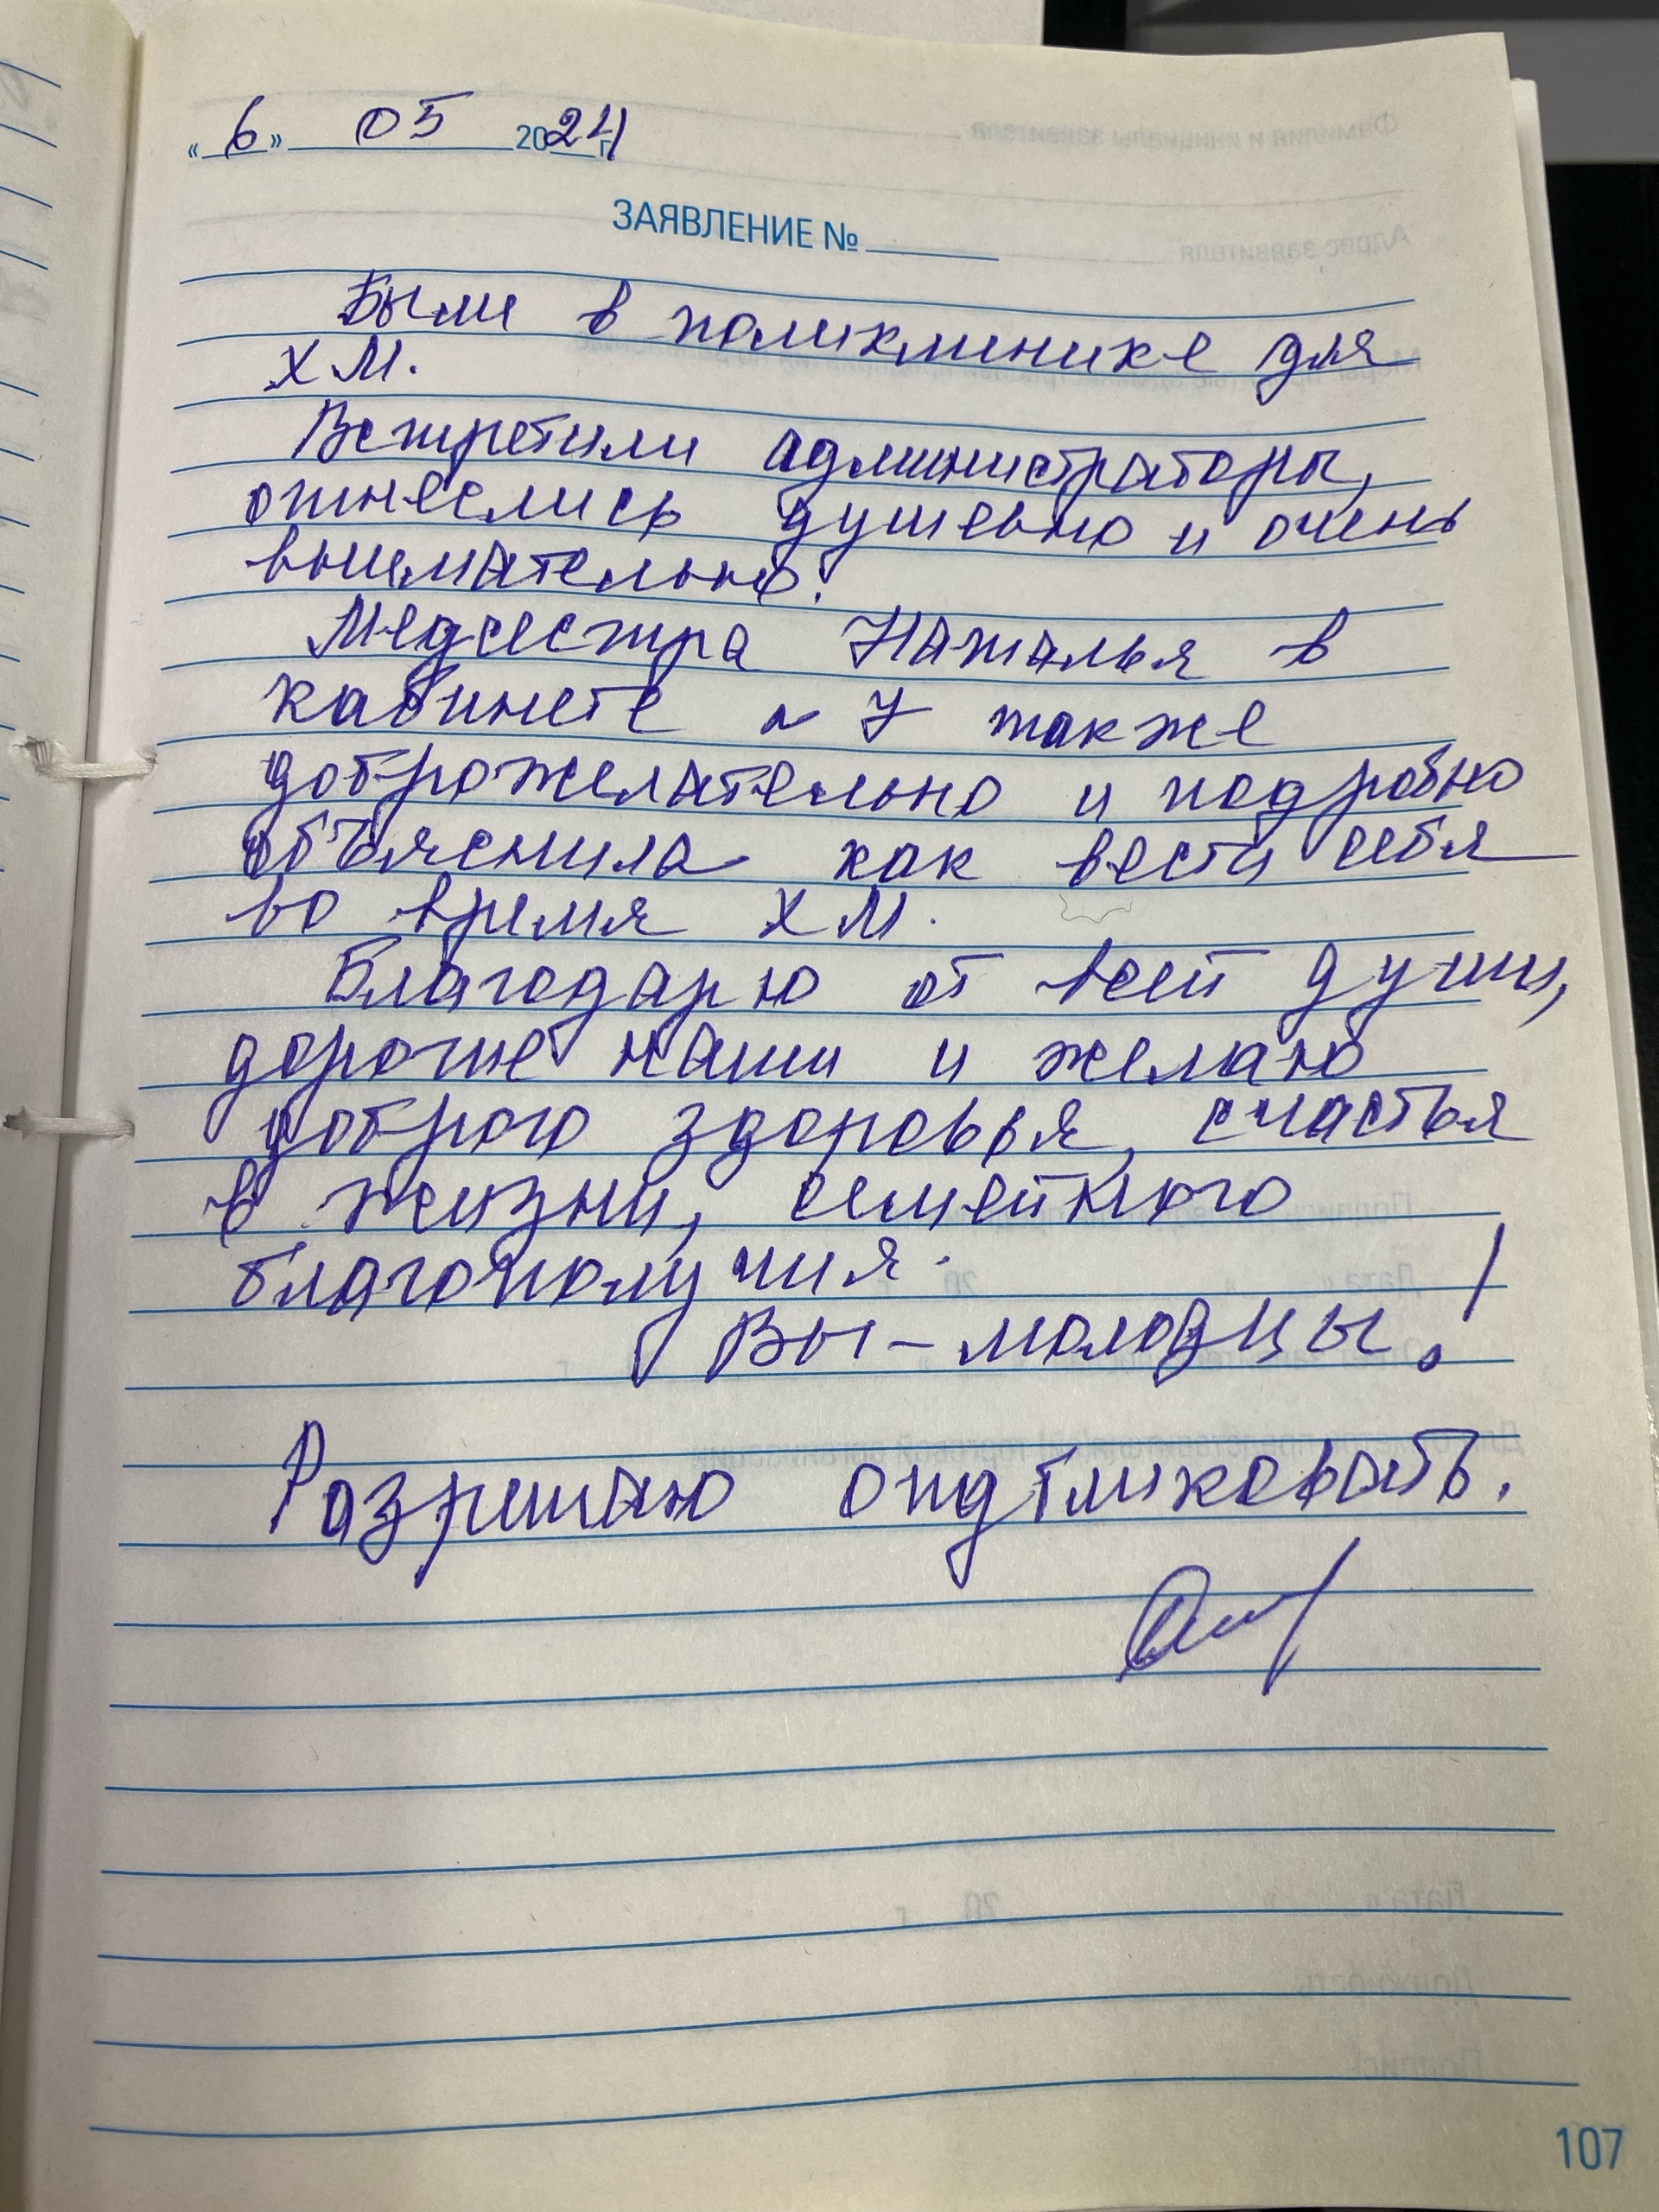 « 6 » 05 2024 г.
ЗАЯВЛЕНИЕ №
Были в поликлинике для
ХМ.
Встретили администраторы,
отнеслись душевно и очень
внимательно.
Медсестра Наталья в
кабинете ~ 7 также
доброжелательно и подробно
объяснила как вести себя
во время ХМ.
Благодарю от всей души,
дорогие наши и желаю
доброго здоровья, счастья
в жизни, семейного
благополучия.
Вы – молодцы!
Разрешаю опубликовать.
107